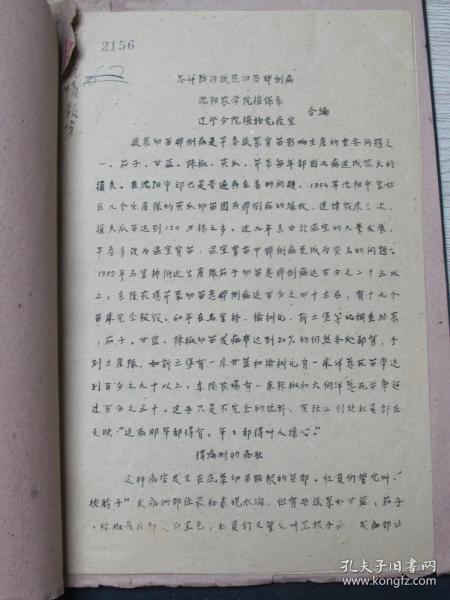 2156
怎样防治蔬菜幼苗猝倒病
沈阳农学院植保系
合编
辽宁分院植物免疫室
蔬菜幼苗猝倒病是早春蔬菜育苗影响生产的重要问题之
一，茄子、甘蓝、辣椒、黄瓜、芹菜每年都因此病造成很大的
损失。在沈阳市郊已是普遍存在着的问题。1954年沈阳市
区几个生产队的黄瓜幼苗因为猝倒病的
损失瓜苗达到120万株之多。近几年来由于温室的大量发展，
早春多改为温室育苗，温室育苗中猝倒病更成为突出的问题。
1959年马官桥附近生产队茄子幼苗患猝倒病达百分之二十五以
上；东陵农场芹菜幼苗患猝倒病达百分之四十左右，有十九个
苗床完全被毁。60年在马官桥、榆树屯、新立堡等地调查结果
，茄子、甘蓝、辣椒幼苗发病率达到20%的仍然各处都有，个
别生产队，如新立堡有一床甘蓝和榆树屯有一床洋葱死苗率达
到百分之九十以上，东陵农场有一床辣椒和六个洋葱死苗率
过百分之三十。这些只是不完全的统计，实际上到处社员都在
反映：“这病那年都得有，年年都得叫人操心。”
得病时的症状
这种病害发生在蔬菜幼苗的茎部。社员们管它叫：“
发病的部位最初表现水渍，但有些蔬菜如甘蓝、茄子
、辣椒 黑色，社员们又管它叫黑 发病部位
孔夫子旧书网
kongfz.com